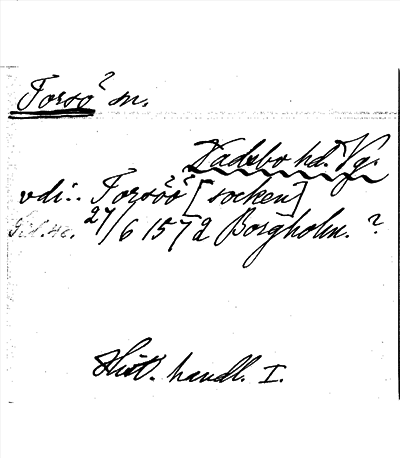 Torsö? sn.
Vadsbo hd. Vg.
vdi: Torsöö [socken]
27/6 1572 Borgholm. ?
Hist. handl. I.